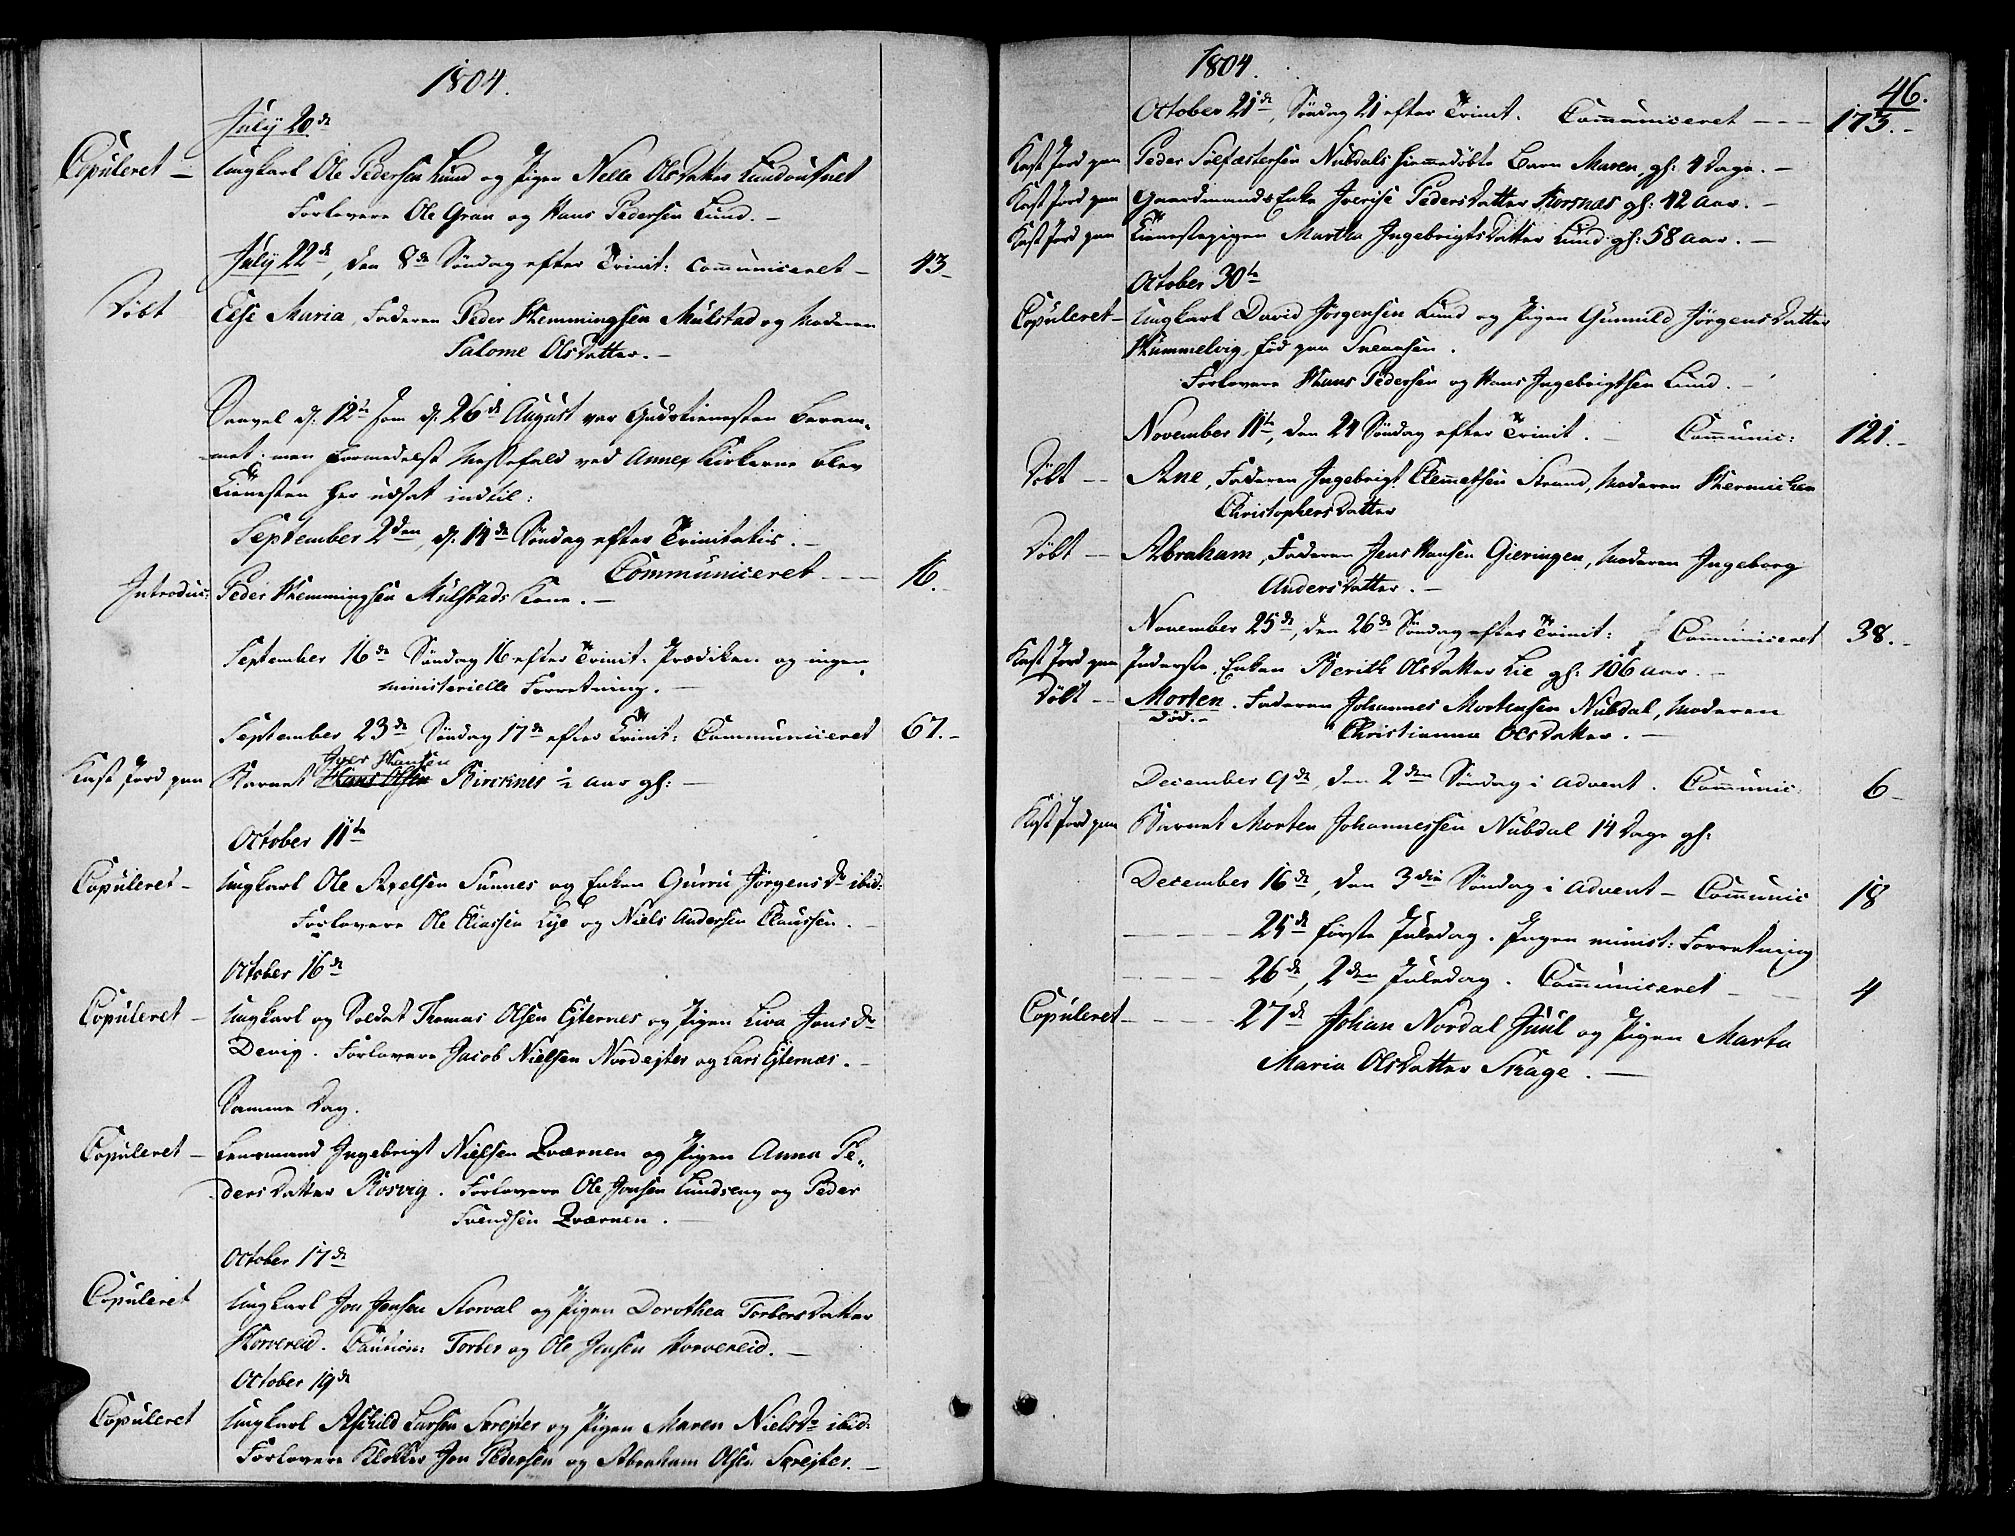 1804.
July 20de
Copuleret — Ungkarl Ole Pedersen Lund og Pigen Nelle Olsdatter
Forlovere Ole Gran og Hans Pedersen Lund. —
July 22de, den 8de Søndag efter Trinit: Communiceret — 43 —
Døbt Else Maria, Faderen Peder Hemmingsen Mulstad og Moderen
Salome Olsdatter. —
Saavel d. 12te som d. 26de August var Gudstienesten beram-
met, men formedelst Messefald ved Annex Kirkerne blev
Tienesten her udsat indtil:
September 2den, d. 14de Søndag efter Trinitatis. —
Communiceret. — — 16. —
Introduc: Peder Hemmingsen Mulstads Kone. —
September 16de Søndag 16 efter Trinit. Prædiken og ingen
ministerielle Forretning. —
September 23de Søndag 17de efter Trinit: Communiceret 67. —
Iver Hansen
Kast Jord paa Barnet Hans Olsen ½ Aar gl: —
October 11te
Copuleret — Ungkarl Ole Axelsen Sunnes og Enken Gurru Jørgensdr ibid:
Forlovere Ole Eliassen Lye og Niels Andersen Claussen. —
October 16de
Copuleret — Ungkarl og Soldat Thomas Olsen Eiternes og Pigen Liva Jonsdr
Devig. Forlovere Jacob Nielsen og Lars Eiternæs. —
Samme Dag.
Copuleret — Lensmand Ingebrigt Nielsen Qværnen og Pigen Anna Pe-
dersdatter Rosvig. Forlovere Ole Jonsen Lundseng og Peder
Svendsen Qværnen. —
October 17de
Copuleret Ungkarl Jon Jensen Storval og Pigen Dorothea Torbersdatter
Horvereid. Caution: Torber og Ole Jensen Horvereid. —
October 19de
Copuleret Ungkarl Aschild Larsen Serejter og Pigen Maren Nielsdr ibid:
Forlovere Klokker Jon Pedersen og Abraham Olsen Serejter. —
1804.
46.
October 21de, Søndag 21 efter Trinit. Communiceret — — — 173. —
Kast Jord paa Peder Silfæstersen Nubdals hiemmedøbte Barn Maren, gl: 4 Dage. —
Kast Jord paa Gaardmands Enke Pedersdatter Korsnæs gl: 42 Aar. —
Kast Jord paa Tienestepigen Martha Ingebrigtsdatter Lund gl: 58 Aar. —
October 30te
Copuleret — Ungkarl David Jørgensen Lund og Pigen Gunnild Jørgensdatter
Hummelvig, fød paa
Forlovere Hans Pedersen og Hans Ingebrigtsen Lund. —
November 11te, den 24 Søndag efter Trinit. — Communic: 121. —
Døbt — Ane, Faderen Ingebrigt Clemetsen Strand, Moderen
Christophersdatter
Døbt — Abraham, Faderen Jens Hansen Gieringen, Moderen Ingeborg
Andersdatter. —
November 25de, den 26de Søndag efter Trinit: Communiceret 38. —
Kast Jord paa Inderste Enken Berith Olsdatter Lie gl: 106 Aar. —
Døbt — Morten. Faderen Johannes Mortensen Nubdal, Moderen
død. —
Christianna Olsdatter. —
December 9de, den 2den Søndag i Advent. Communic: 6 —
Kast Jord paa Barnet Morten Johannessen Nubdal 14 Dage gl:
December 16de, den 3die Søndag i Advent — Communic 18
— — — 25de første Juledag. Ingen minist: Forretning
— — — 26de, 2den Juledag. Communiceret — — 4
Copuleret — — — 27de Johan Nordal Juul og Pigen Marta
Maria Olsdatter Skage. —